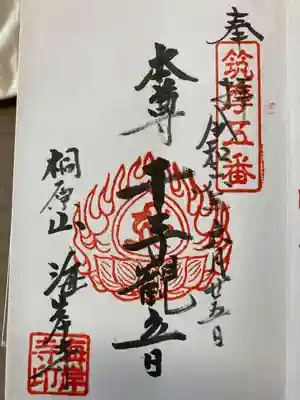 奉拝
筑摩五番
令和年月廿五日
本尊
千手觀音
桐原山
海岸寺
海岸
寺印